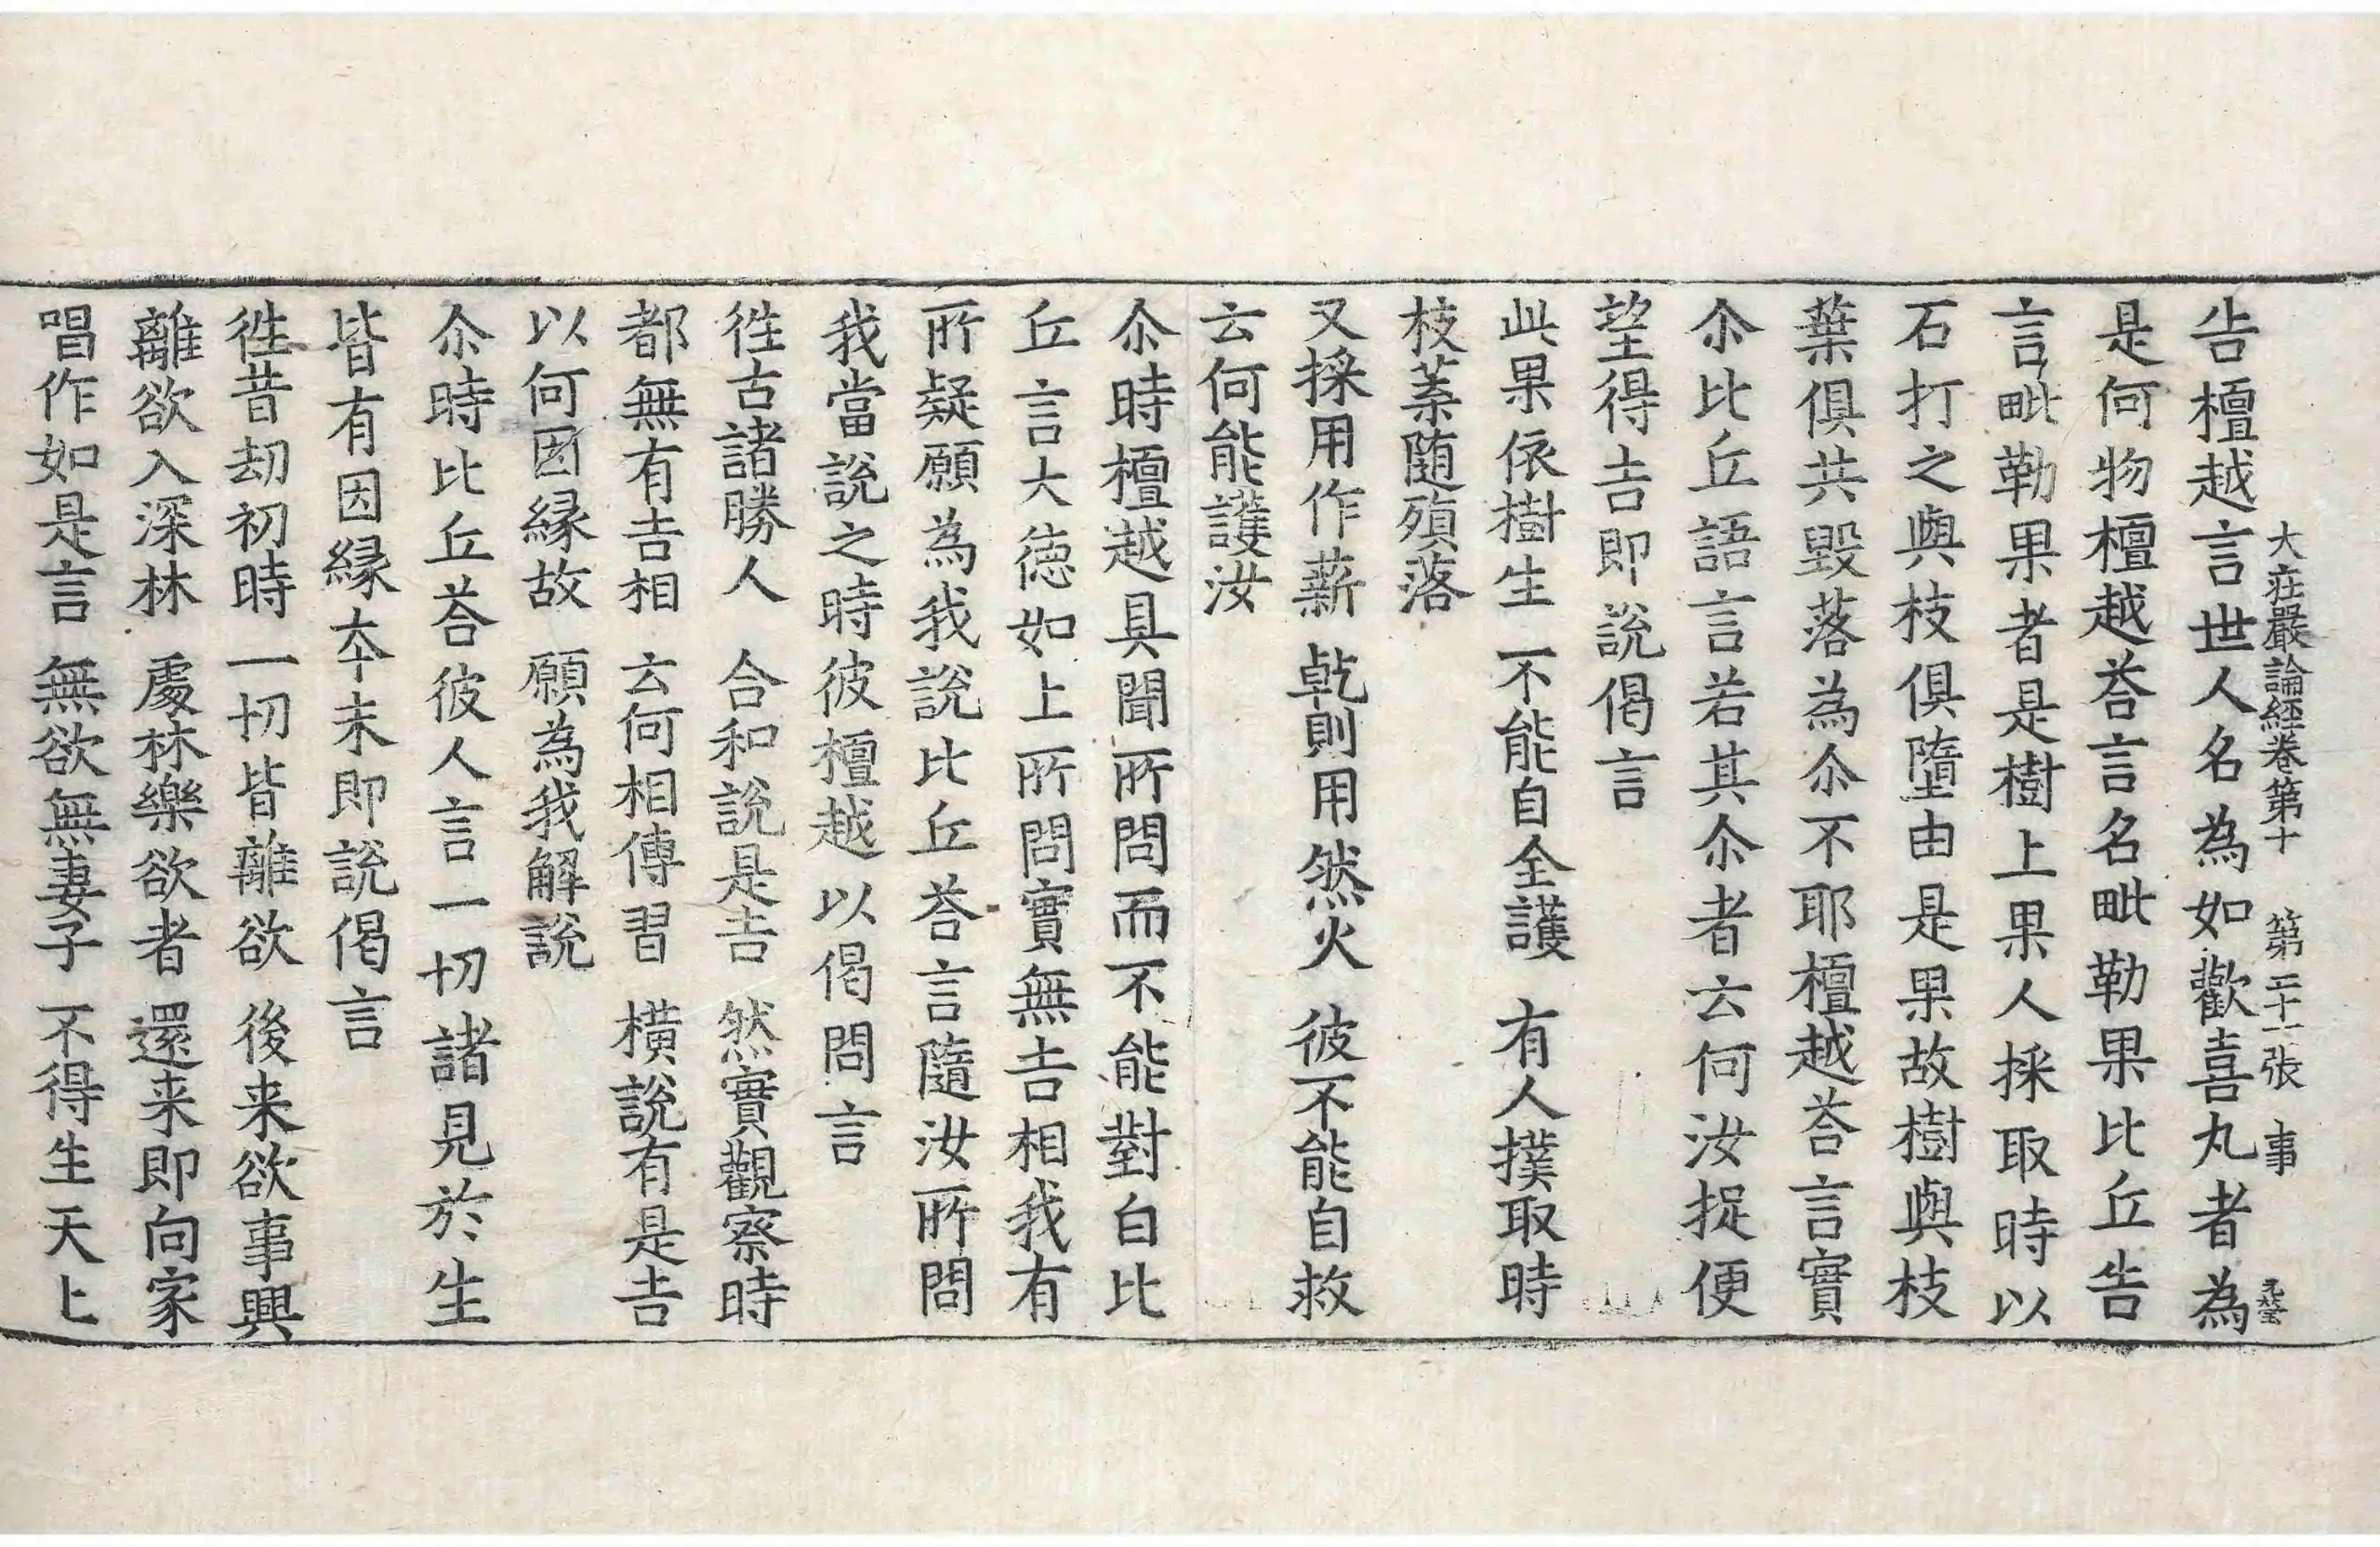 大莊嚴論經卷第十　第二十一張　事
告檀越言世人名為如歡喜丸者為
是何物檀越荅言名毗勒果比丘告
言毗勒果者是樹上果人採取時以
石打之與枝俱墮由是果故樹與枝
葉俱共毀落為尒不耶檀越荅言實
尒比丘語言若其尒者云何汝捉便
望得吉即說偈言
此果依樹生　不能自全護　有人撲取時
枝葉随殞落
又採用作薪　乾則用然火　彼不能自救
云何能護汝
尒時檀越具聞所問而不能對白比
丘言大德如上所問實無吉相我有
所疑願為我說比丘荅言隨汝所問
我當說之時彼檀越以偈問言
徃古諸勝人　合和說是吉　然實觀察時
都無有吉相　云何相傳習　橫說有是吉
以何因縁故　願為我解說
尒時比丘荅彼人言一切諸見於生
皆有因縁本末即說偈言
徃昔劫初時　一切皆離欲　後来欲事興
離欲入深林　處林樂欲者　還来即向家
唱作如是言　無欲無妻子　不得生天上